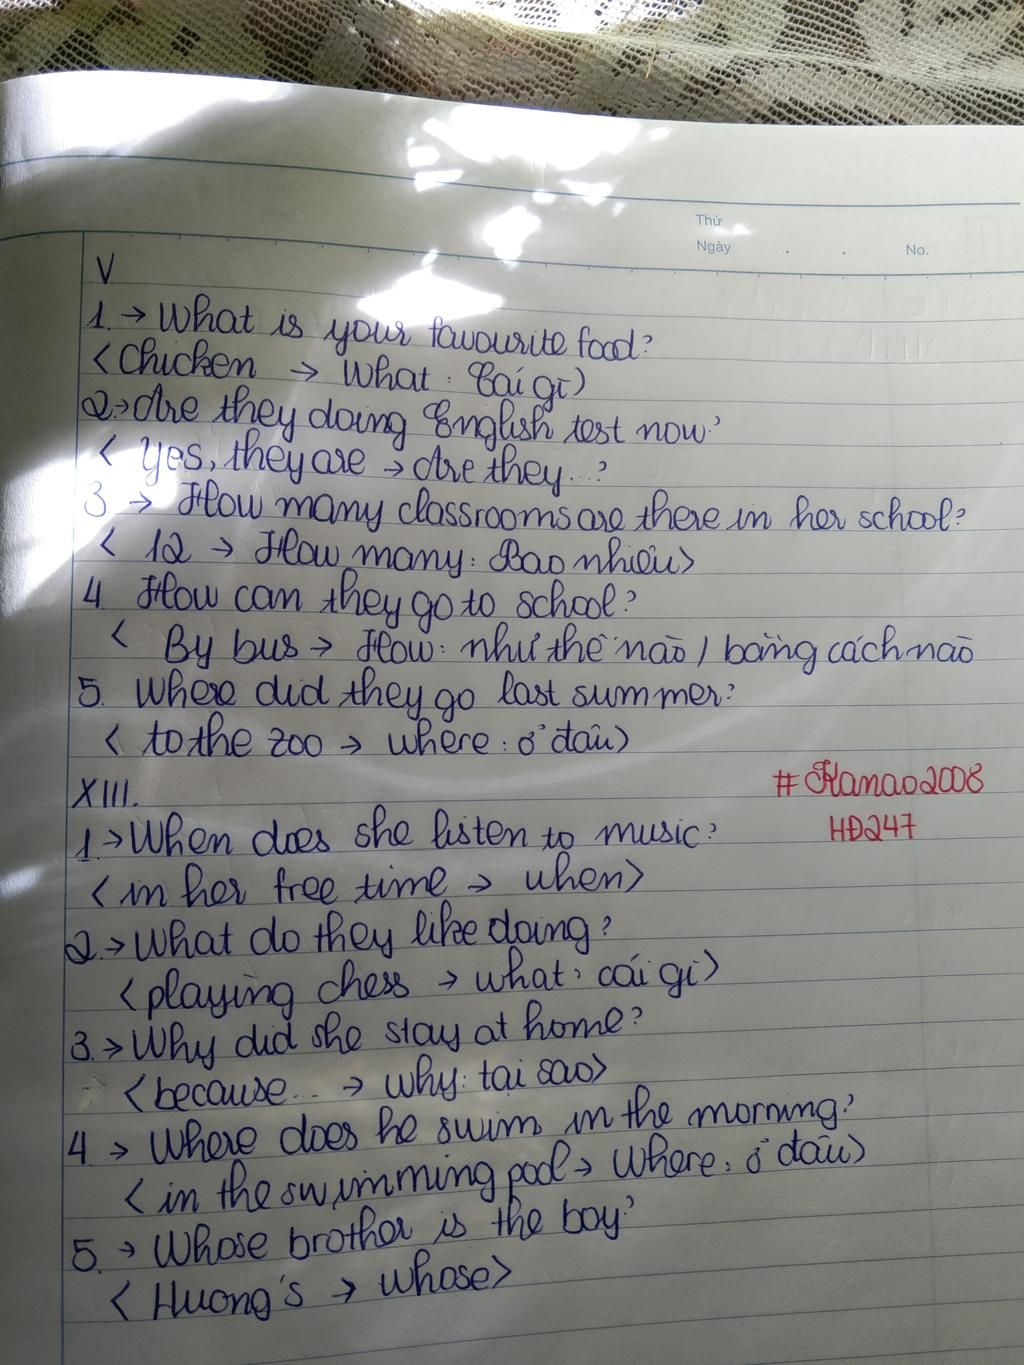 Thứ
Ngày . . No.
V
1. → What is your favourite food?
< Chicken → What : Cái gì)
2. → Are they doing English test now?
< Yes, they are → Are they...?
3 → How many classrooms are there in her school?
< 12 → How many: Bao nhiêu>
4 How can they go to school?
< By bus → How: như thế nào / bằng cách nào
5. Where did they go last summer?
< to the zoo → where : ở đâu)
XIII.
#Kanao2008
HĐ247
1. → When does she listen to music?
< in her free time → when>
2. → What do they like doing?
< playing chess → what: cái gì>
3. → Why did she stay at home?
< because... → why: tại sao>
4 → Where does he swim in the morning?
< in the swimming pool → Where: ở đâu)
5. → Whose brother is the boy?
< Huong's → whose>